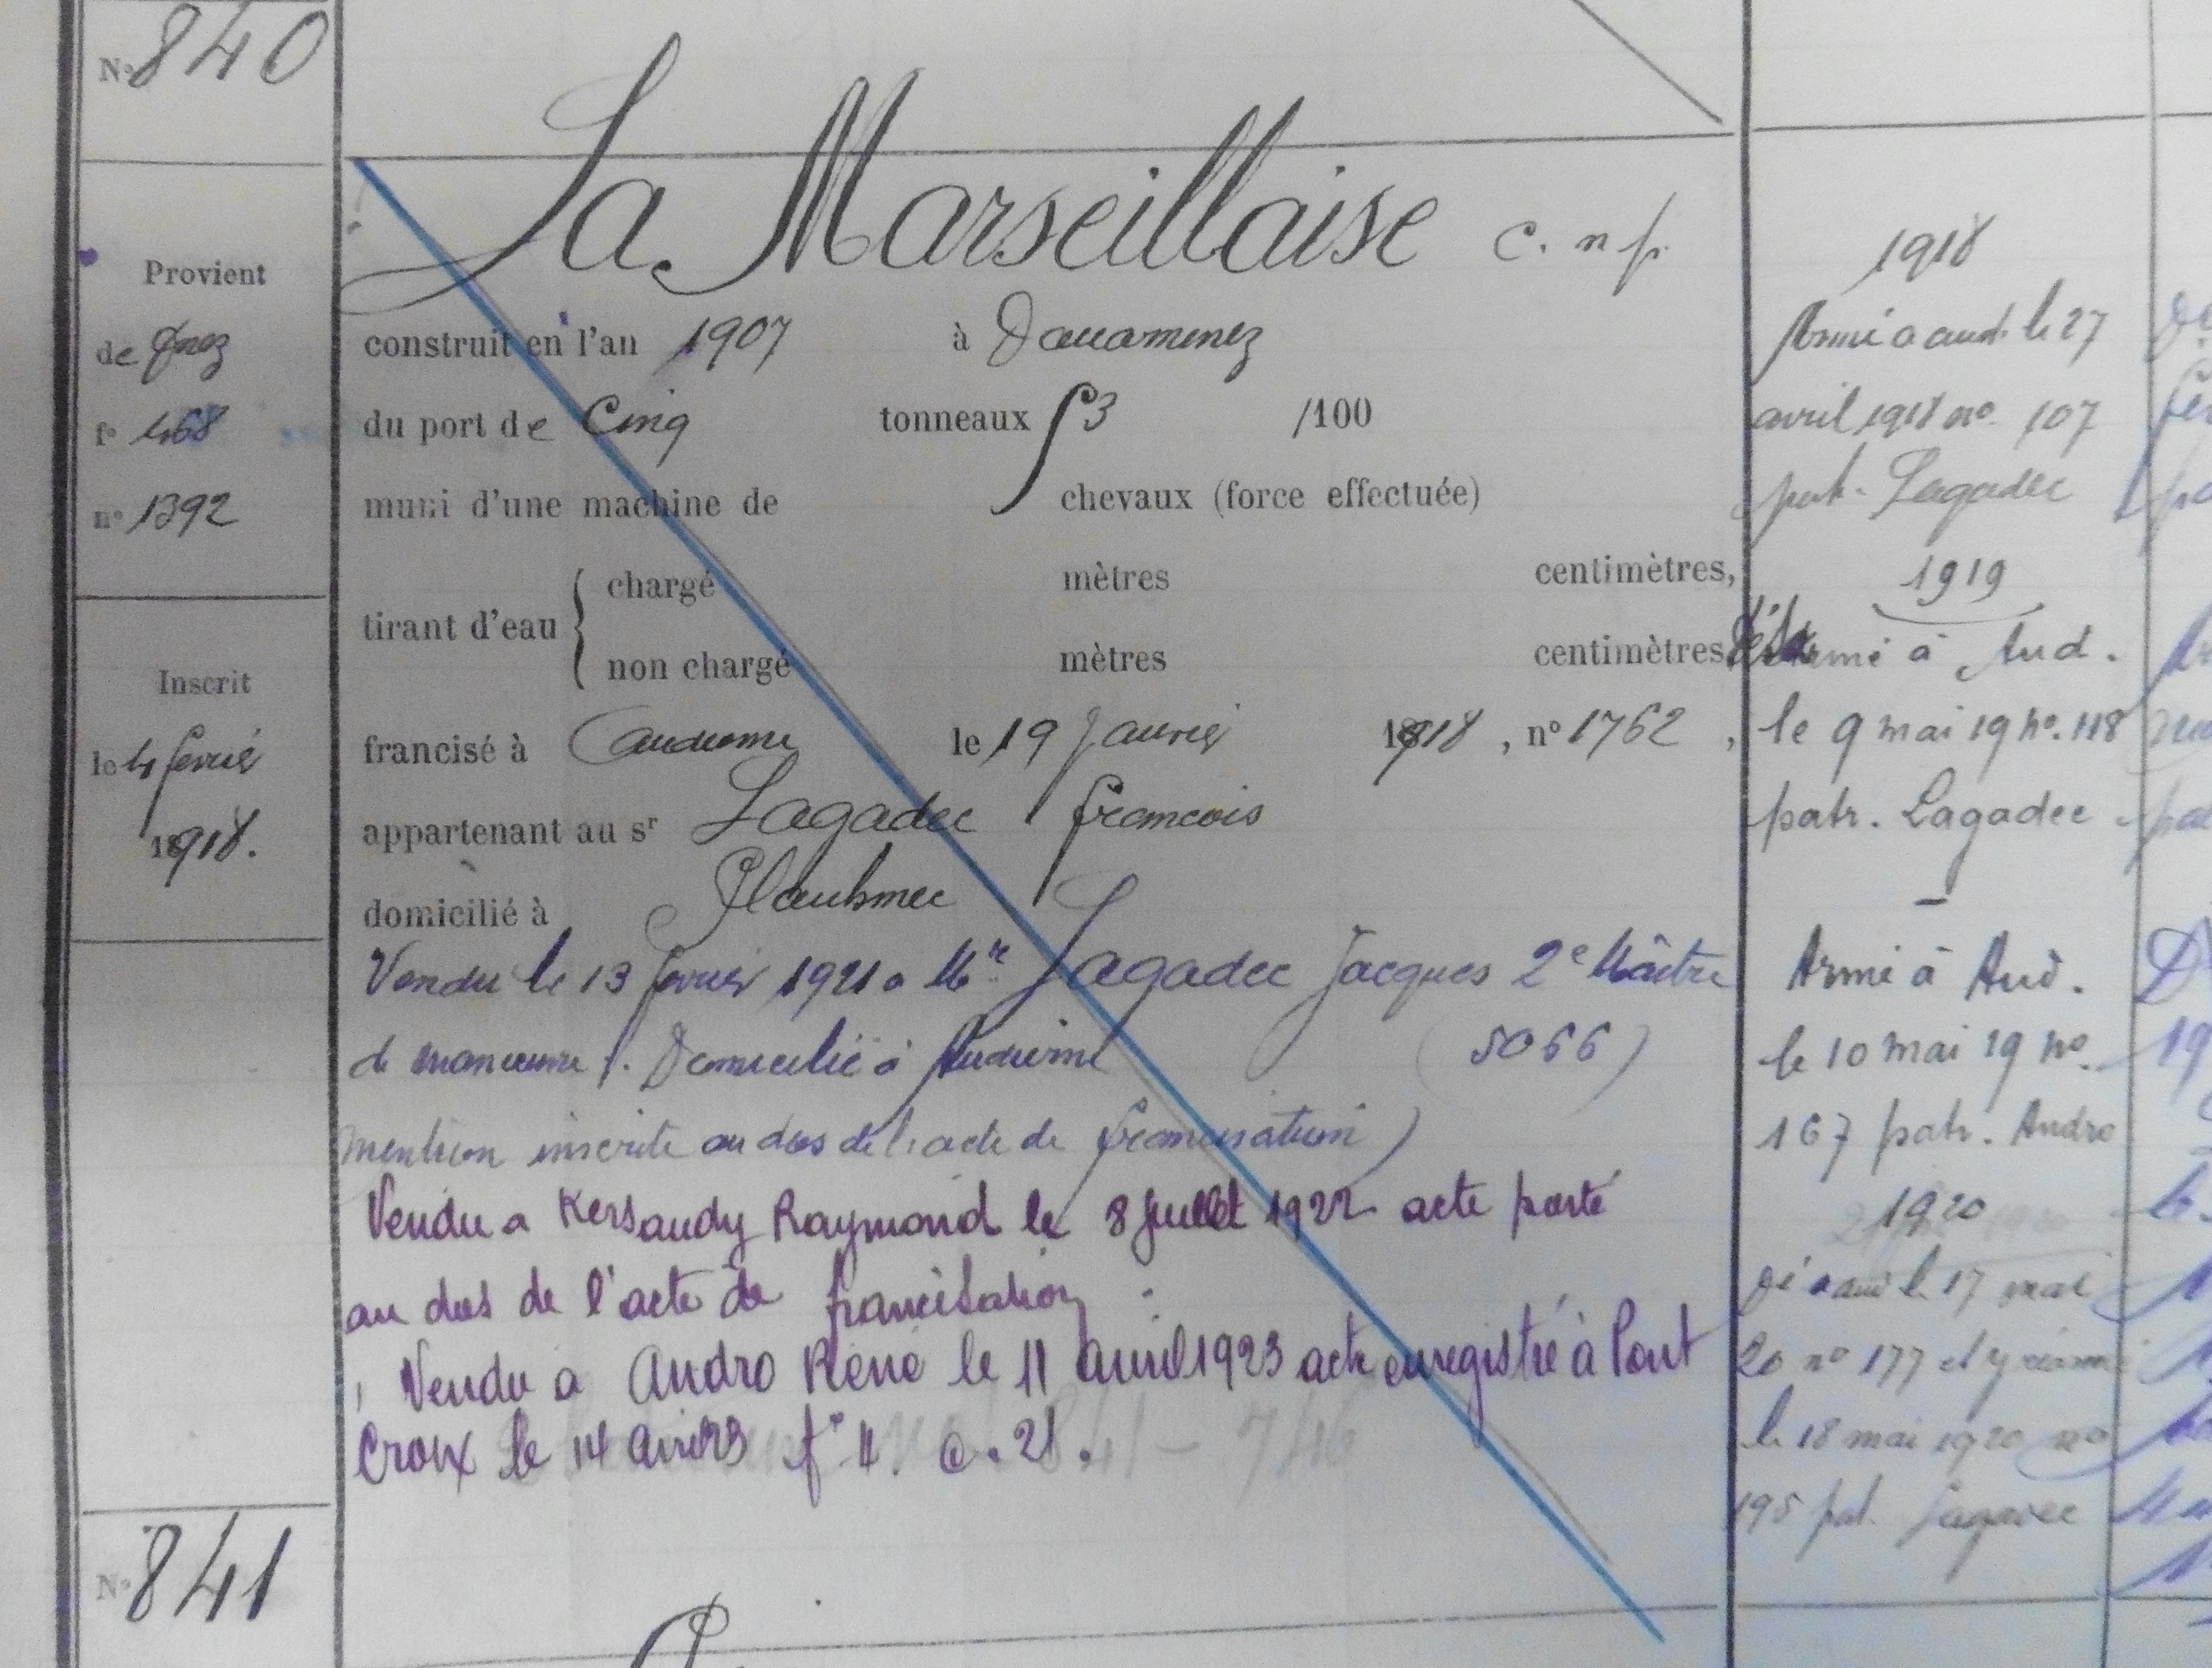 N° 840
La Marseillaise c. n p.
Provient
de Dnez
f° 468
n° 1392
Inscrit
le 4 fevrier
1918.
construit en l'an 1907 à Douarnenez
du port de Cinq tonneaux 53 /100
muni d'une machine de chevaux (force effectuée)
tirant d'eau { chargé mètres centimètres,
non chargé mètres centimètres
francisé à Audierne le 19 Janvier 1918, n° 1762,
appartenant au sr Lagadec Francois
domicilié à Plouhinec
Vendu le 13 fevrier 1921 a Mr Lagadec Jacques 2e Maître
de manœuvre. Domicilié à Audierne (5066)
mention inscrite au dos de l'acte de francisation)
Vendu a Kersaudy Raymond le 8 Juillet 1922 acte porté
au dos de l'acte de francisation
Vendu a Andro René le 11 avril 1923 acte enregistré à Pont
Croix le 14 avril 23 f° 11. c. 21.
1918
Armé a aud. le 27
avril 1918 no. 107
pat. Lagadec
1919
Désarmé à Aud.
le 9 mai 19 no. 118
patr. Lagadec
Armé à Aud.
le 10 mai 19 no.
167 patr. Andro
1920
Dé a aud le 17 mai
20 no 177 et y réarmé
le 18 mai 1920 no
195 pat. Lagadec
N° 841